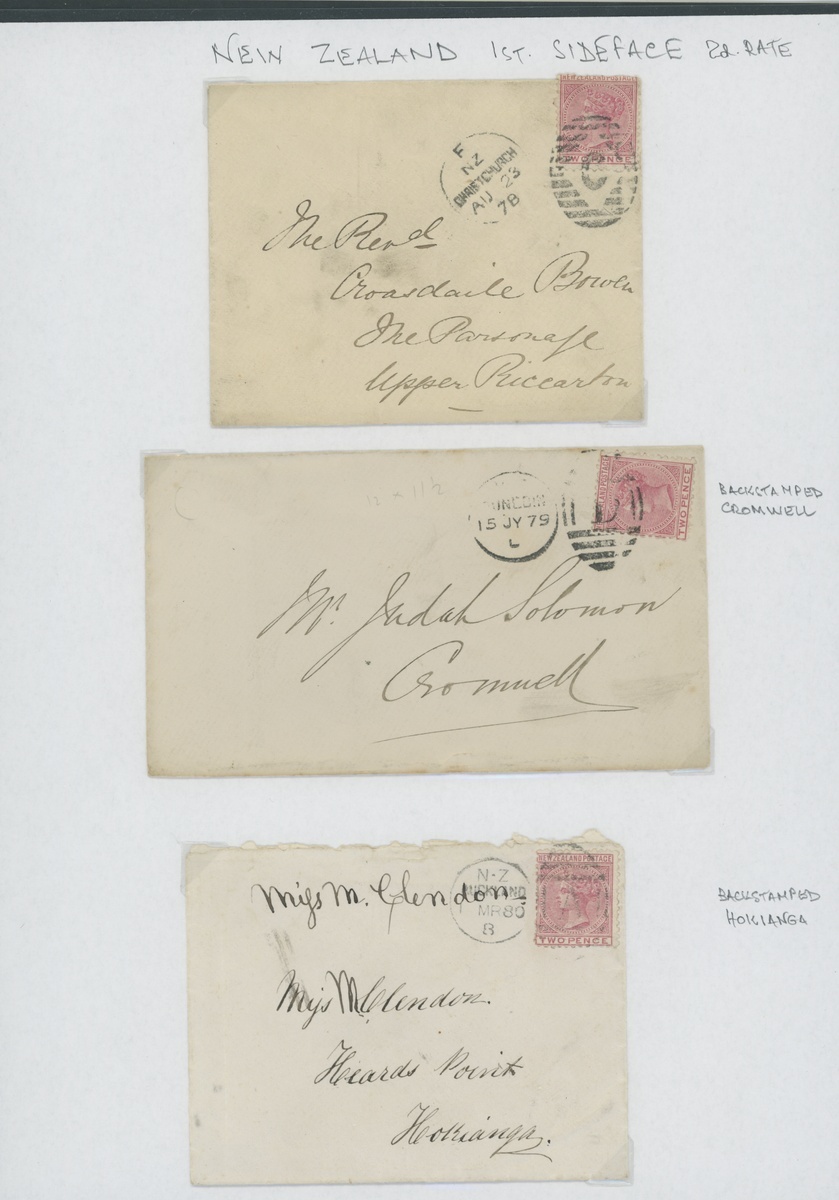 NEW ZEALAND 1ST. SIDEFACE 2d. RATE
NEW ZEALAND POSTAGE
TWO PENCE
F
NZ
CHRISTCHURCH
AU 23
78
C
The Revd
Croasdaile Bowen
The Parsonage
Upper Riccarton
12 x 11½
DUNEDIN
15 JY 79
L
D
TWO PENCE
BACKSTAMPED
CROMWELL
Mr. Judah Solomon
Cromwell
N·Z
AUCKLAND
MR 80
B
NEW ZEALAND POSTAGE
TWO PENCE
Miss McClendon
BACKSTAMPED
HOKIANGA
Miss McClendon.
Heards Point
Hokianga.